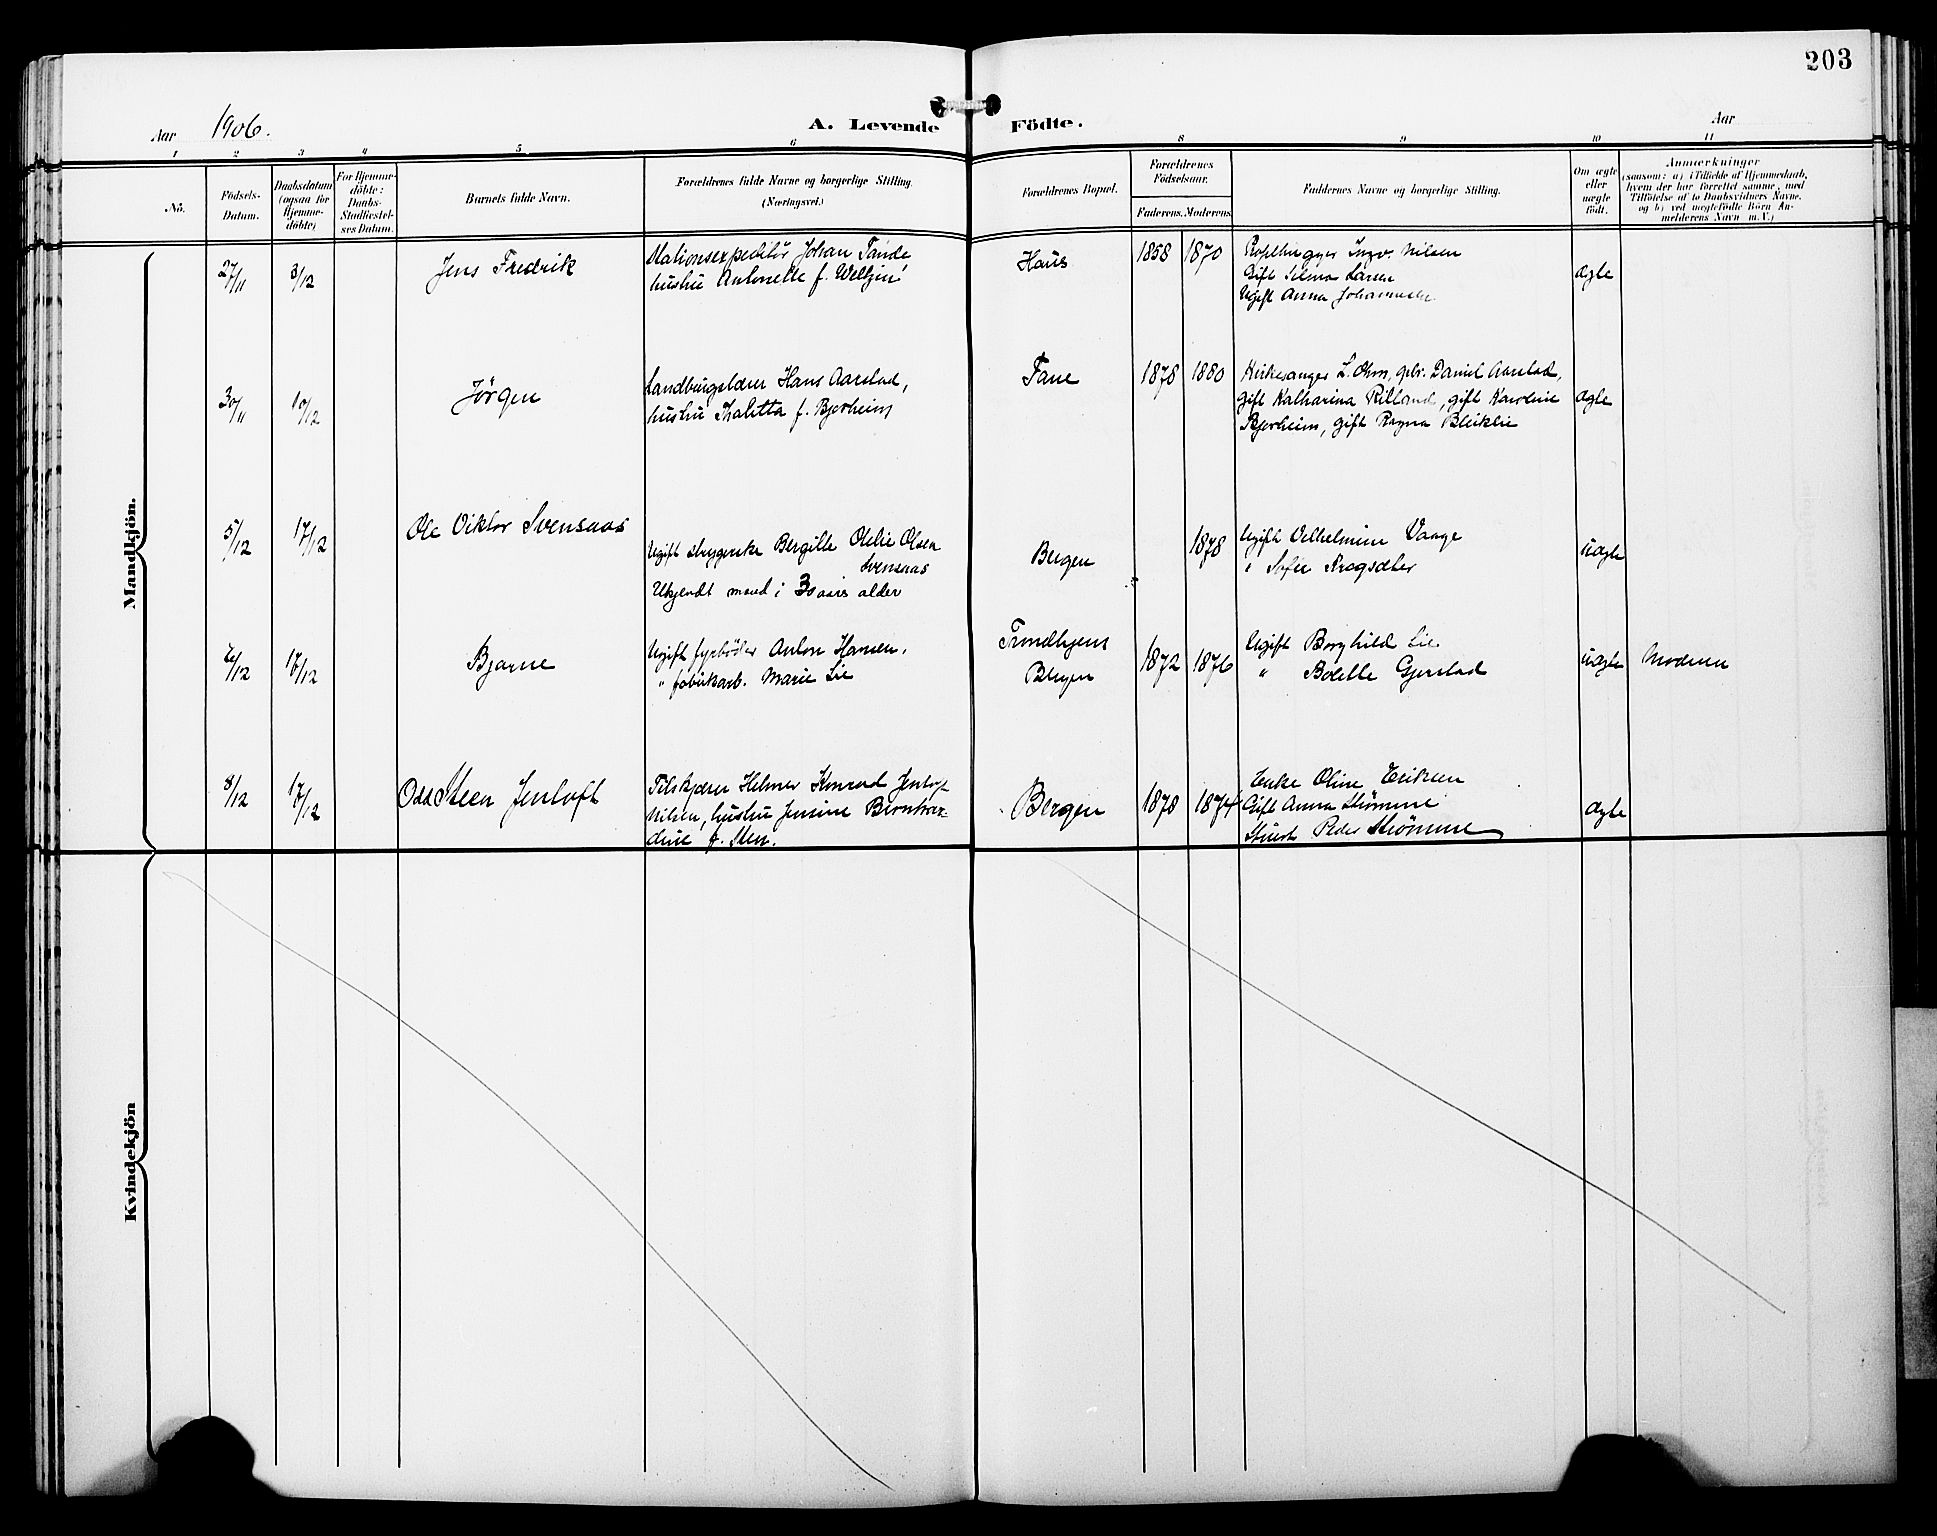 203
Aar 1906.
A. Levende Födte.
Aar
1 2 3 4 5 6 8 9 10 11
No.
Födsels-
Datum.
Daabsdatum
(ogsaa for
Hjemme-
döbte)
For Hjemme-
döbte:
Daabs-
Stadfæstel-
ses Datum.
Barnets fulde Navn.
Forældrenes fulde Navne og borgerlige Stilling.
(Næringsvei.)
Forældrenes Bopæl.
Forældrenes
Födselsaar.
Faderens. Moderens.
Faddernes Navne og borgerlige Stilling.
Om ægte
eller
uægte
födt.
Anmærkninger
(saasom: a) i Tilfælde af Hjemmedaab,
hvem der har forrettet samme, med
Tilföielse af to Daabsvidners Navne,
og b) ved uægtefödte Börn An-
melderens Navn m. V.)
Mandkjön.
27/11 3/12 Jens Fredrik
Stationsexpeditör Johan Tande
hustru Antonette f.
Haus 1858 1870
Ingv. Nilsen
Gift Selma Larsen
Ugift Anna Johannesen
ægte
30/11 10/12 Jörgen
Hans Aarstad,
hustru Thalitta f. Bjerheim
Fane 1878 1880
Kirkesanger L. Ohm, gbr. Daniel Aarstad,
gift Katharina, gift Karoline
Bjerheim, gift Ragna Bleiklie
ægte
5/12 17/12 Ole Viktor Svensaas
Ugift strygerske Bergitte Oleie Olsen
Svensaas
Ukjendt mand i 30 aars alder
Bergen 1878
Ugift Vilhelmine Vaage
" Sofie
uægte
6/12 17/12 Bjarne
Ugift fyrböder Anton Hansen,
" fabrikarb. Marie Lie
Trondhjem
Bergen
1872 1876
Ugift Borghild Lie
" Bolette Gjerstad
uægte Moderen
8/12 17/12 Odd Steen Jentoft
Helmer Konrad Jentoft
Nilsen, hustru Jensine Bernthar-
dine f. Sten.
Bergen 1878 1874
Enke Oline Eriksen
Gift Anna Strömme
Peder Strömme
ægte
Kvindekjön